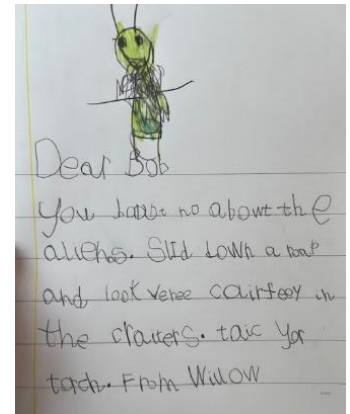 Dear Bob
You no about the
aliens. Slid down a
and look veree cairfeey in
the craters. taic yor
torch. From Willow